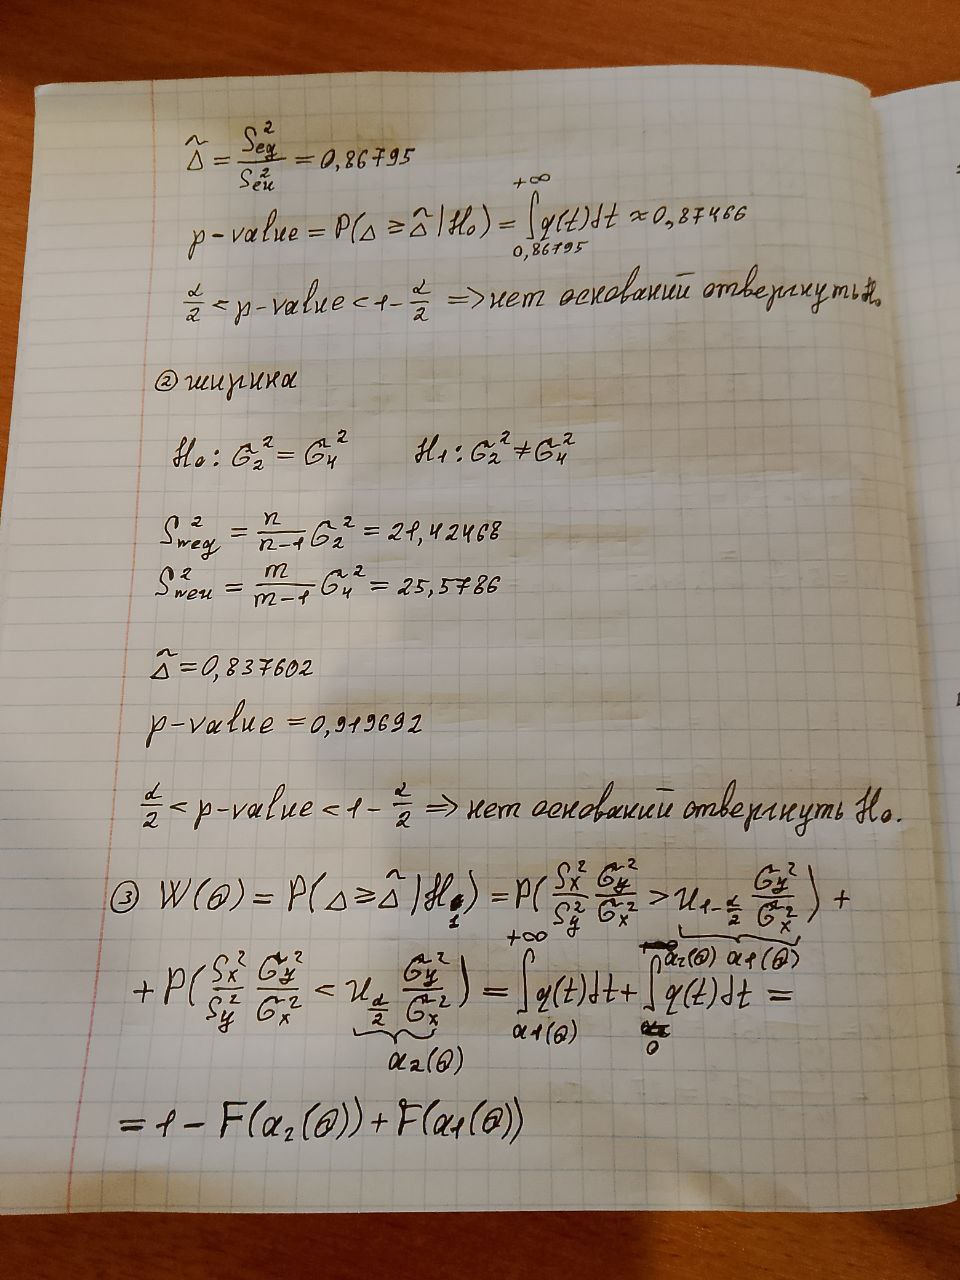 Δ̃ = S²eg / S²eн = 0,86795
p-value = P(Δ ≥ Δ̃ | H₀) = ∫_{0,86795}^{+∞} q(t)dt ≈ 0,87466
α/2 < p-value < 1 - α/2 => нет оснований отвергнуть H₀
② ширина
H₀: σ₂² = σ₄² H₁: σ₂² ≠ σ₄²
S²weg = n/(n-1) σ₂² = 21,42468
S²weн = m/(m-1) σ₄² = 25,5786
Δ̃ = 0,837602
p-value = 0,919692
α/2 < p-value < 1 - α/2 => нет оснований отвергнуть H₀.
③ W(θ) = P(Δ ≥ Δ̃ | H₁) = P(Sx²/Sy² σy²/σx² > u_{1-α/2} σy²/σx²) +
a₁(θ)
+ P(Sx²/Sy² σy²/σx² < u_{α/2} σy²/σx²) = ∫_{a₁(θ)}^{+∞} q(t)dt + ∫_{0}^{a₂(θ)} q(t)dt =
a₂(θ)
= 1 - F(a₂(θ)) + F(a₁(θ))